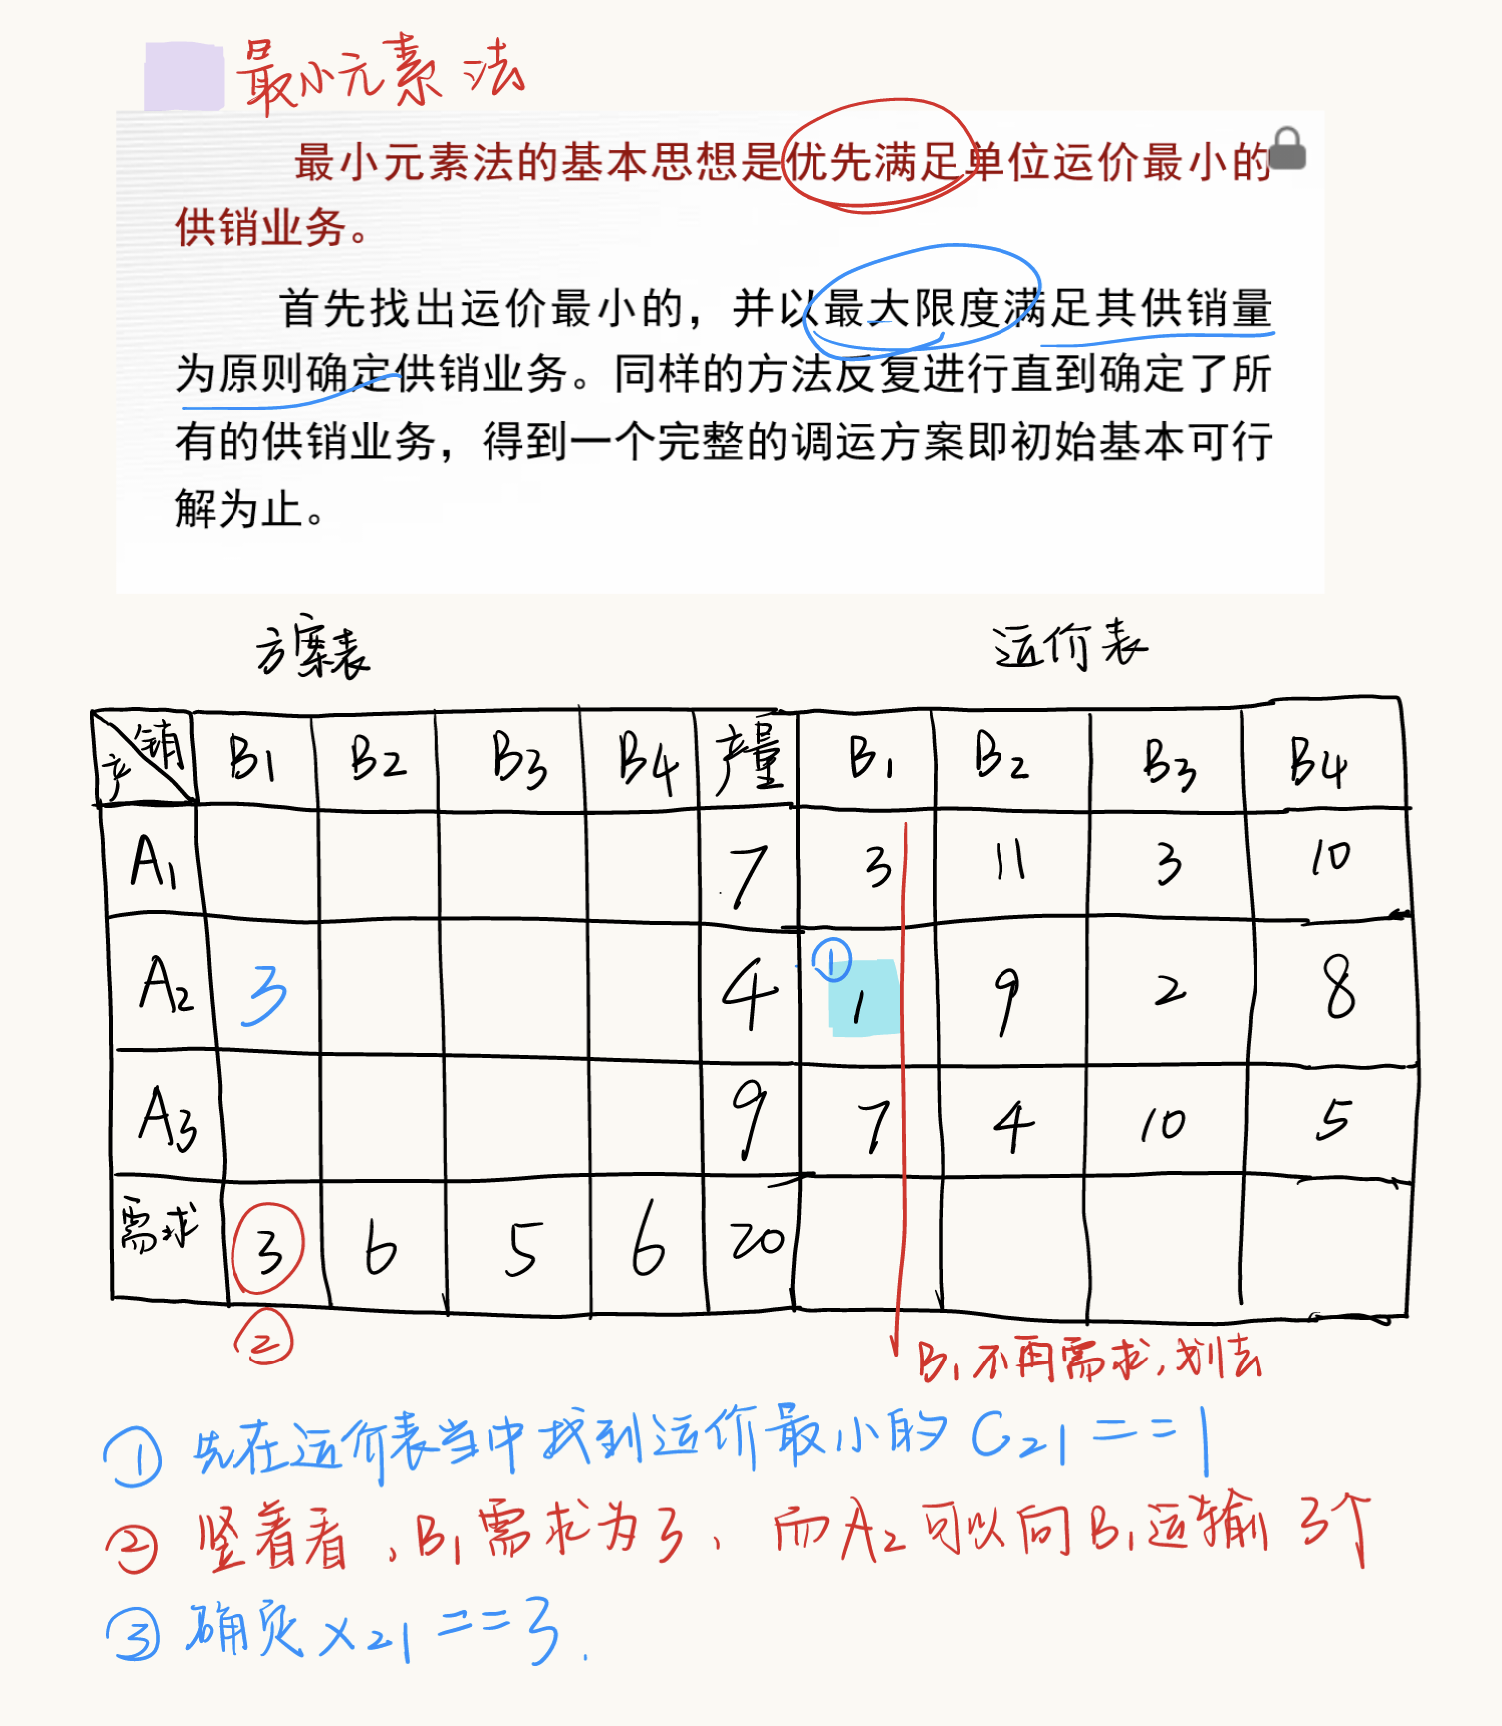 最小元素法
最小元素法的基本思想是优先满足单位运价最小的
供销业务。
首先找出运价最小的，并以最大限度满足其供销量
为原则确定供销业务。同样的方法反复进行直到确定了所
有的供销业务，得到一个完整的调运方案即初始基本可行
解为止。
方案表 运价表
销 产 B1 B2 B3 B4 产量 B1 B2 B3 B4
A1 7 3 11 3 10
A2 3 4 ① 1 9 2 8
A3 9 7 4 10 5
需求 3 6 5 6 20
②
B1不再需求，划去
① 先在运价表当中找到运价最小的 C21 == 1
② 竖着看，B1需求为3、而A2可以向B1运输3个
③ 确定 x21 == 3.